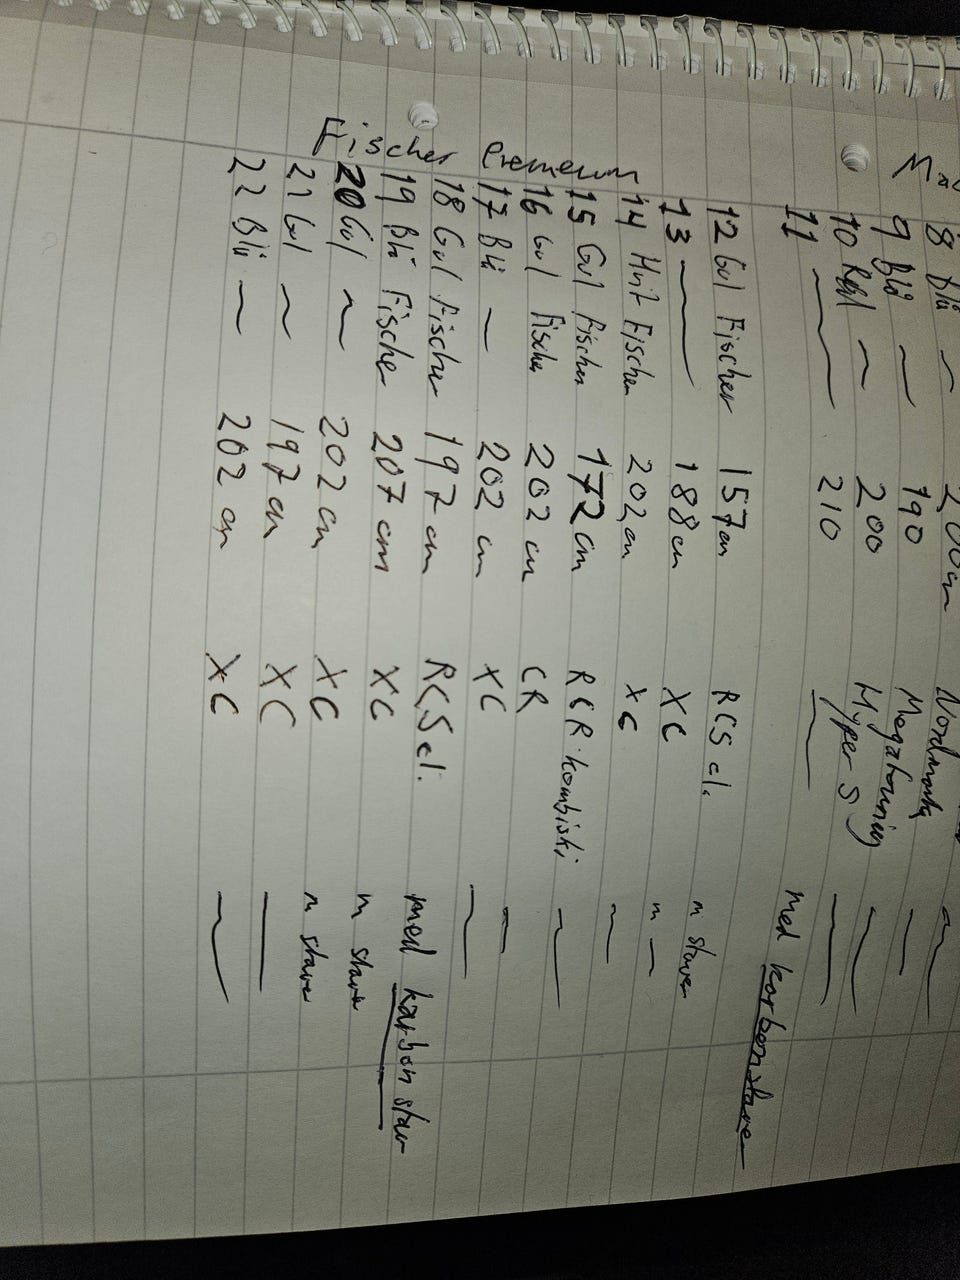 8 Blå ~ 200 cm Nordmarka ~
9 Blå — 190 Megatouring —
10 Rød ~ 200 Hyper S —
11 — 210 — —
med karbonstaver
12 Gul Fischer 157 cm RCS cl.
13 — 188 cm XC m staver
14 Hvit Fischer 202 cm XC m —
15 Gul Fischer 172 cm RCR kombiski ~
16 Gul Fischer 202 cm CR ~
17 Blå ~ 202 cm XC —
18 Gul Fischer 197 cm RCS cl. —
19 Blå Fischer 207 cm XC med karbon stav
20 Gul ~ 202 cm XC m stave
21 Gul ~ 197 cm XC m stave
22 Blå ~ 202 cm XC —
—
Fischer Premeum